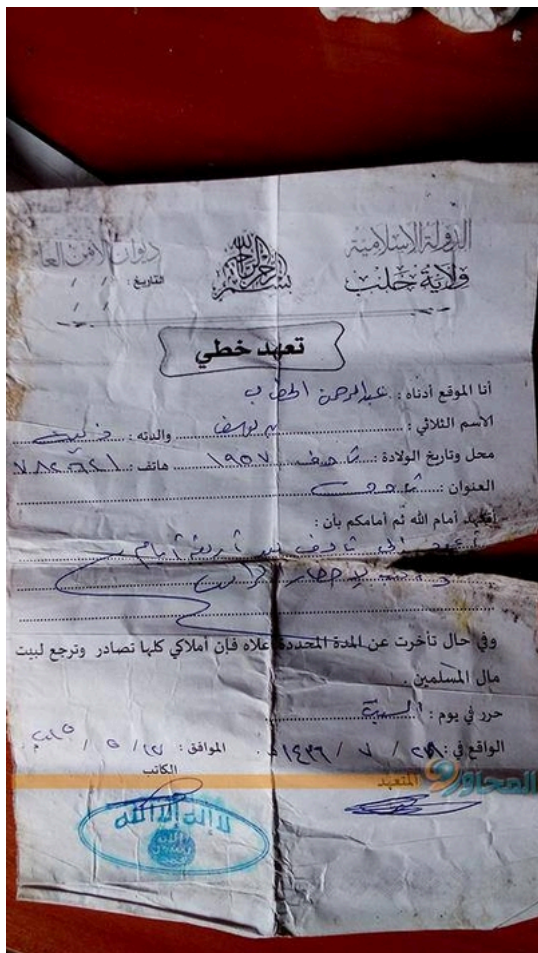 الدولة الإسلامية
ولاية حلب
بسم الله الرحمن الرحيم
ديوان الأمن العام
التاريخ : / /
/ /
تعهد خطي
أنا الموقع أدناه : عبدالرحمن
الاسم الثلاثي : يوسف والدته :
محل وتاريخ الولادة : تادف ١٩٥٧ هاتف :
العنوان : تادف
أتعهد أمام الله ثم أمامكم بأن :
أتعهد تادف أيام
وفي حال تأخرت عن المدة المحددة أعلاه فإن أملاكي كلها تصادر وترجع لبيت
مال المسلمين .
حرر في يوم : السبت
الواقع في : ٢٨ / ٧ / ١٤٣٦ هـ . الموافق : ١٧ / ٥ /
المتعهد الكاتب
المحاور
لا إله إلا الله
الله
رسول
محمد